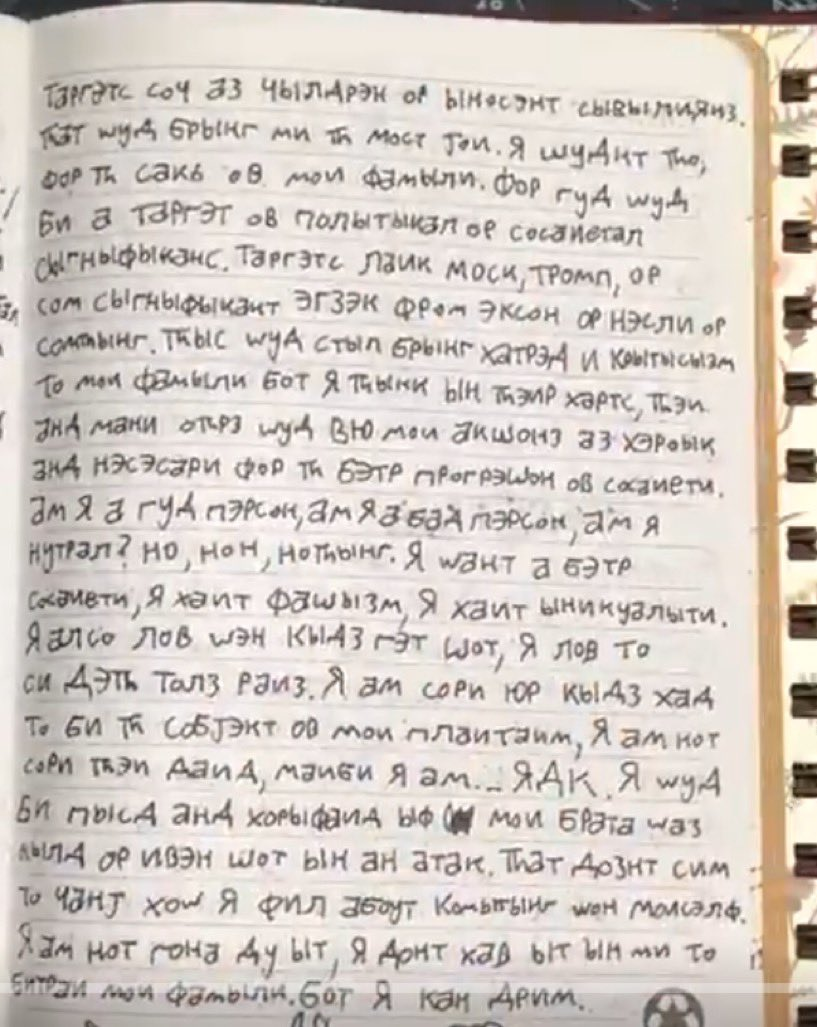 Таргэтс соч аз чылдрэн ор ыносэнт сывылиянз.
Тһат wуд брынг ми тһ мост јои. Я wуднт тһо,
фор тһ сакь ов мои фамыли. Фор гуд wуд
би а таргэт ов полытыкал ор сосаиетал
сыгныфыканс. Таргэтс лаик моск, тромп, ор
сом сыгныфыкант эгзэк фром эксон ор нэсли ор
сомтһынг. Тһыс wуд стыл брынг хатрэд и крытысызм
то мои фамыли бот я тһынк ын тһэир хартс, тһэи
анд мани отһрз wуд вю мои акшонз аз хэроык
анд нэсэсари фор тһ бэтр прогрэшон ов сосаиети.
ам я а гуд пэрсон, ам я а бад пэрсон, ам я
нутрал? но, нон, нотһынг. Я wант а бэтр
сосаиети, я хаит фашызм, я хаит ыникуалыти.
Я алсо лов wэн кыдз гэт шот, я лов то
си дэтһ толз раиз. Я ам сори юр кыдз хад
то би тһ собјэкт ов мои плаитаим, я ам нот
сори тһэи даид, маиби я ам... ЯДК. Я wуд
би пысд анд хорыфаид ыф мои брата wаз
кылд ор ивэн шот ын ан атак. Тһат дознт сим
то чанј хоw я фил абоут комытынг wон моисэлф.
Я ам нот гона ду ыт, я донт хав ыт ын ми то
битраи мои фамыли. Бот я кан дрим.